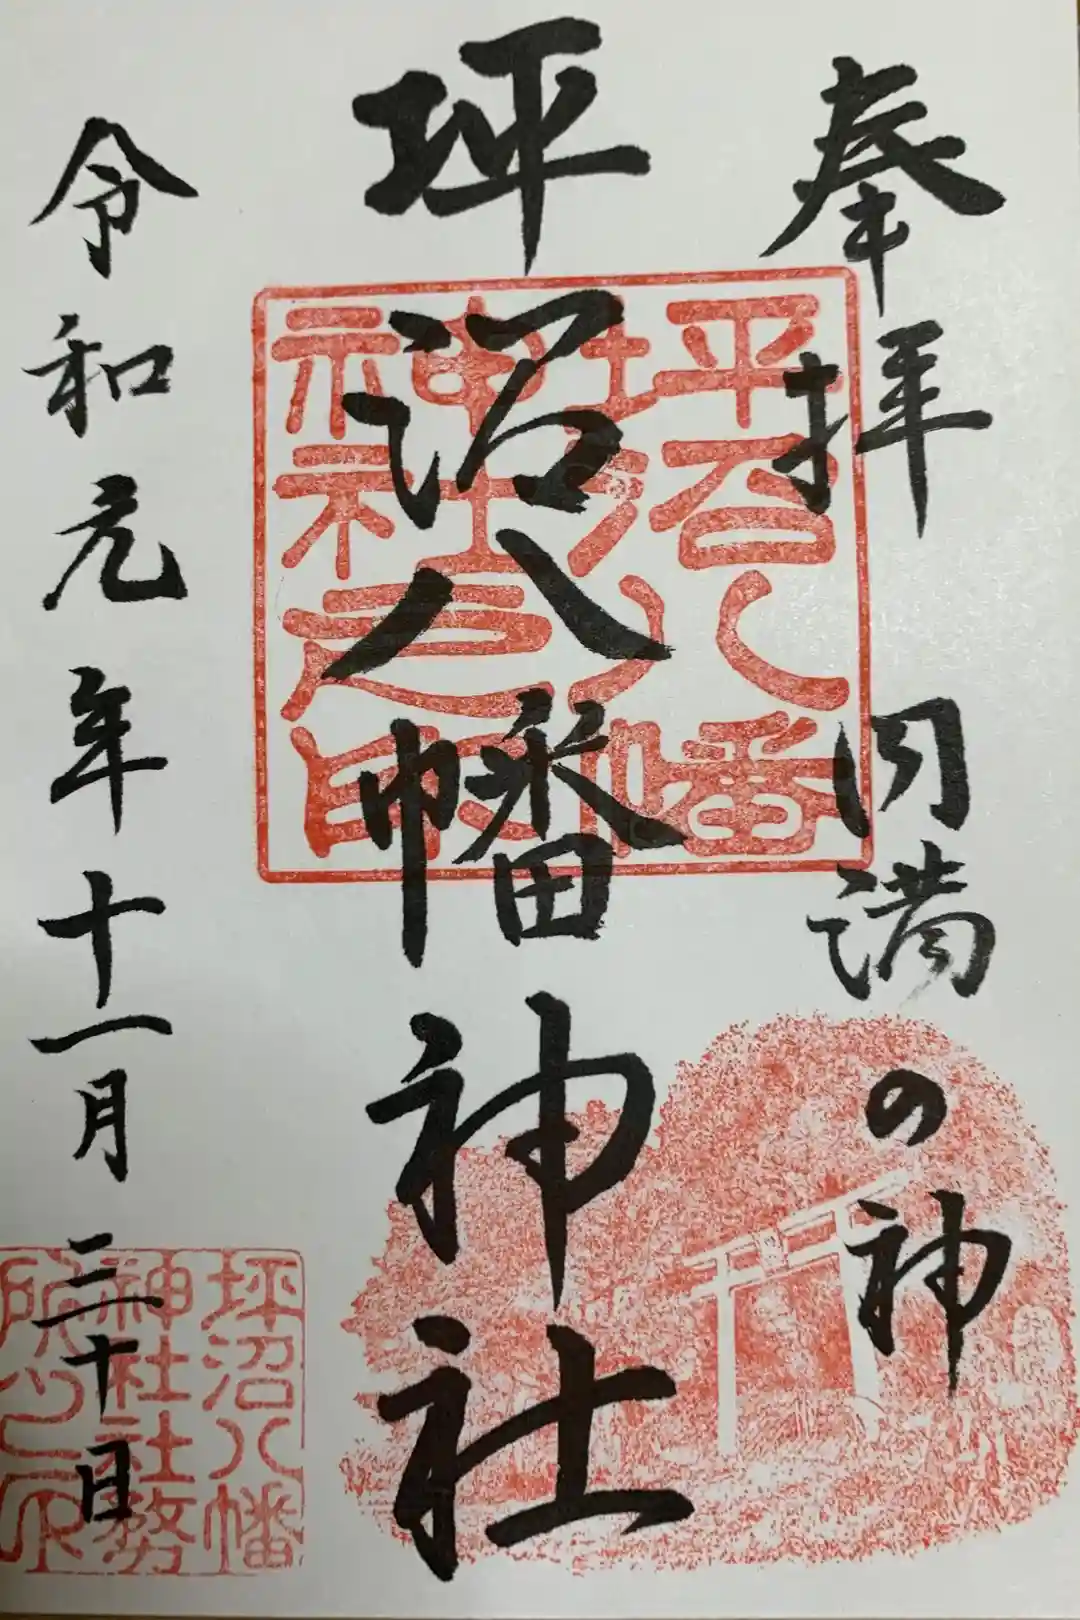 奉拝 円満の神
坪沼八幡神社
令和元年十一月三十日
坪沼八幡
神社之印
坪沼八幡
神社社務
所之印